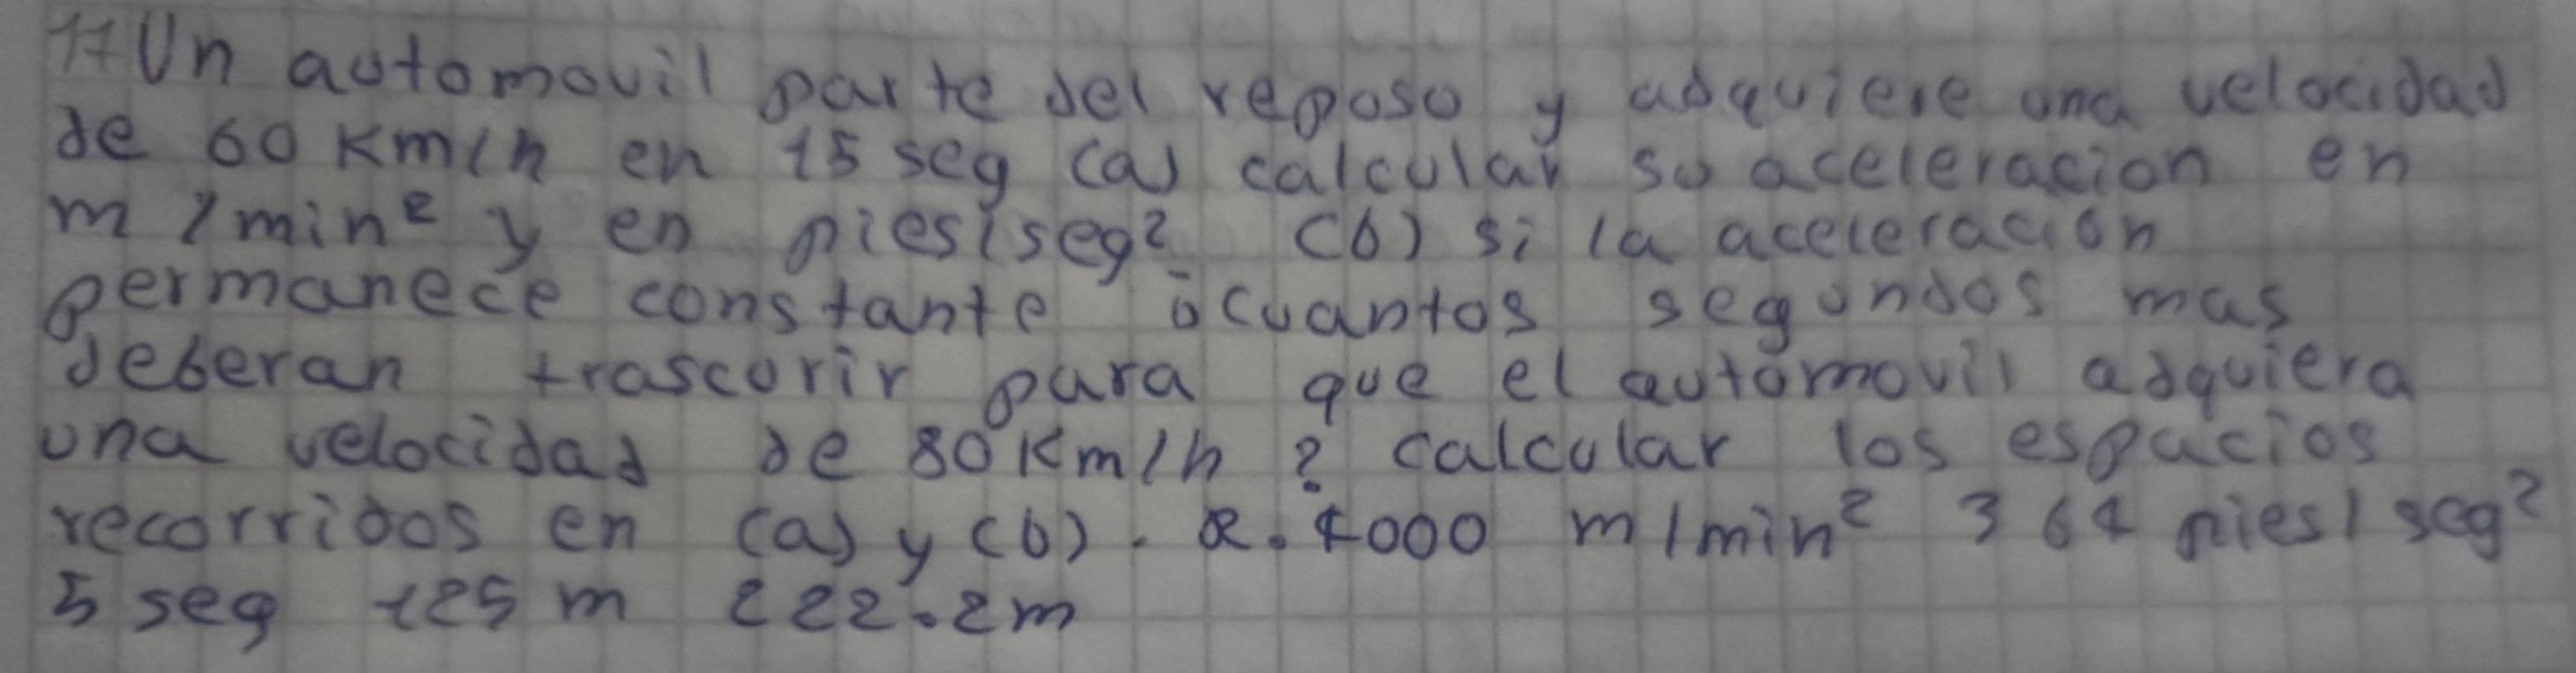 17 Un automovil parte del reposo y adquiere una velocidad
de 60 Km/h en 15 seg (a) calcular su aceleracion en
m/min² y en pies/seg² (b) si la aceleración
permanece constante ¿cuantos segundos mas
deberan trascorir para que el automovil adquiera
una velocidad de 80 Km/h? calcular los espacios
recorridos en (a) y (b). R. 4000 m/min² 3 64 pies/seg²
5 seg 125 m 222.2m